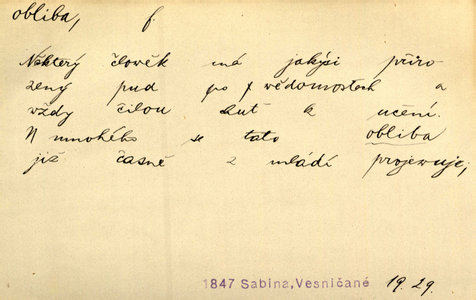 obliba, f.
Některý člověk má jakýsi přiro
zený pud po vědomostech a
vždy čilou chuť k učení.
U mnohého se tato obliba
již časně z mládí projevuje;
1847 Sabina, Vesničané 19.29.